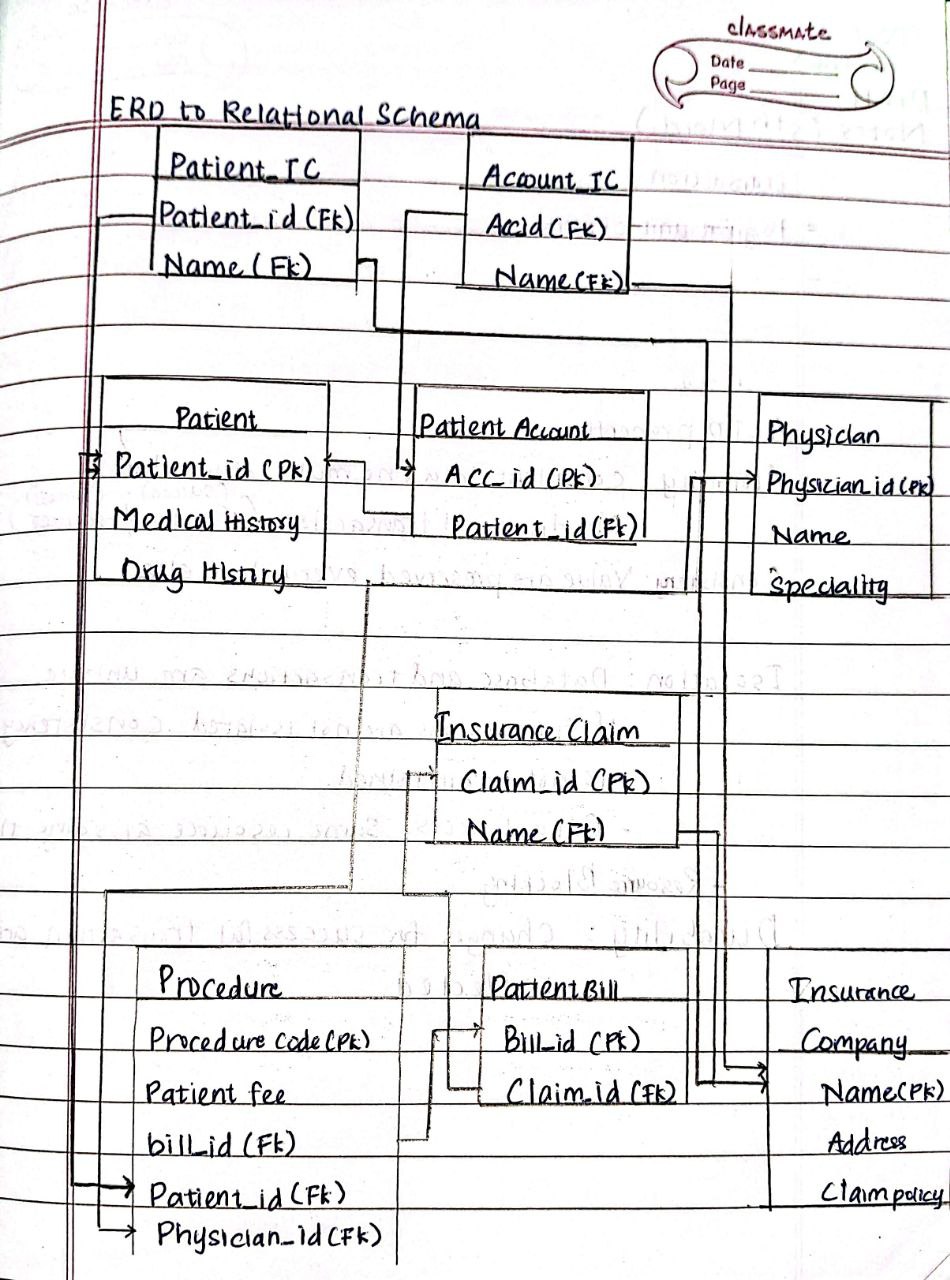 classmate
Date
Page
ERD to Relational Schema
Patient_IC
Patient_id (Fk)
Name (Fk)
Account_IC
Accid (Fk)
Name (Fk)
Patient
Patient_id (Pk)
Medical History
Drug Histiry
Patient Account
Acc_id (Pk)
Patient_id (Fk)
Physician
Physizian_id (Pk)
Name
Speciality
Insurance Claim
Claim_id (Pk)
Name (Fk)
Procedure
Procedure Code (Pk)
Patient fee
bill_id (Fk)
Patient_id (Fk)
Physician_id (Fk)
Patient Bill
Bill_id (Pk)
Claim_id (Fk)
Insurance
Company
Name (Pk)
Address
Claim policy